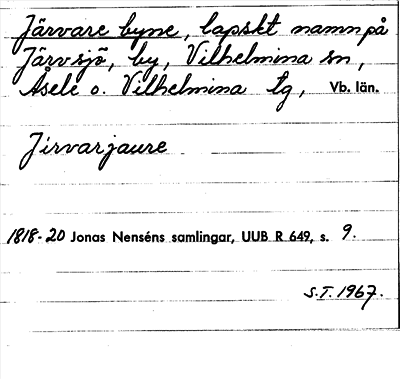 Järvare byne, lapskt namn på
Järvsjö, by, Vilhelmina sn,
Åsele o. Vilhelmina tg, Vb. län.
Jirvarjaure
1818-20 Jonas Nenséns samlingar, UUB R 649, s. 9.
S.T. 1967.